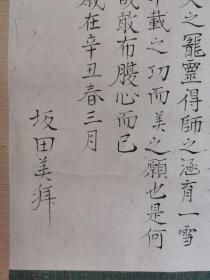 之寵靈得師之涵育一雪
載之功而美之願也是何
敢布腹心而已
歲在辛丑春三月
坂田美拜